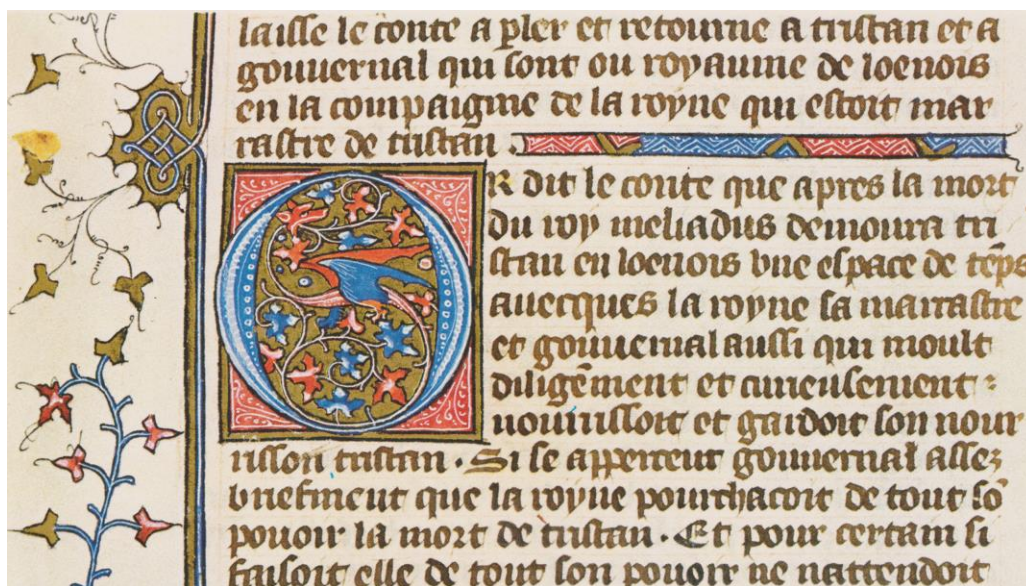 laisse le conte a pler et retourne a tristan et a
gouuernal qui sont ou royaume de loenois
en la compaignie de la royne qui estoit mar
rastre de tristan .
OR dit le conte que apres la mort
du roy meliadus demoura tri
stan en loenois vne espace de tẽps
auecques la royne sa marrastre
et gouuernal aussi qui moult
diligẽment et curieusement :
nourrissoit et gardoit son nour
risson tristan . Si se apperceut gouuernal assez
briefment que la royne pourchacoit de tout sõ
pouoir la mort de tristan . Et pour certain si
faisoit elle de tout son pouoir ne nattendoit